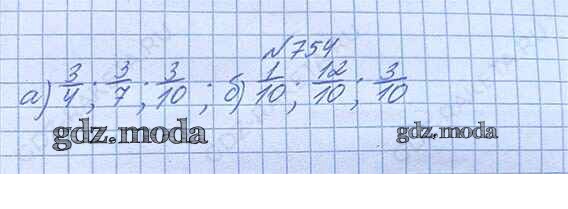 №754
а) 3/4; 3/7; 3/10; б) 1/10; 12/10; 3/10
gdz.moda gdz.moda